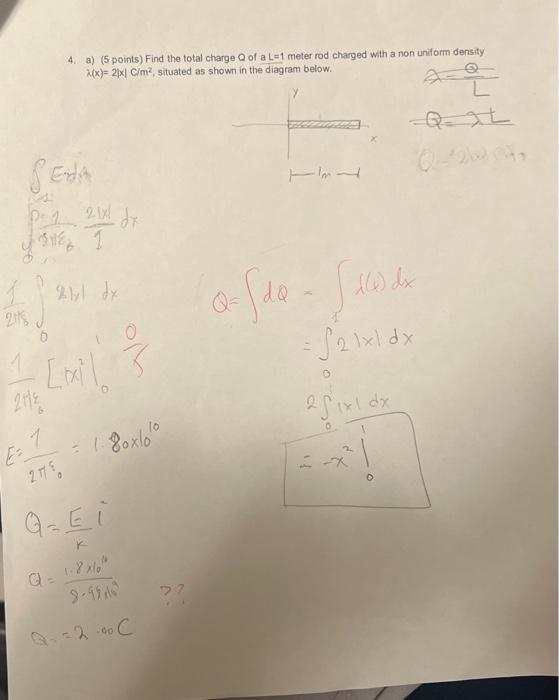 4. a) (5 points) Find the total charge Q of a L=1 meter rod charged with a non uniform density
λ(x)= 2|x| C/m², situated as shown in the diagram below.
λ = Q/L
Q = λL
y
x
1m
∫ E·dA
2|x|/1 dx
1/2πε₀ ∫₀¹ 2|x| dx
1/2πε₀ [|x|²]₀¹
0/5
E = 1/2πε₀ = 1.80x10¹⁰
Q = E/K î
Q = 1.8x10¹⁰/8.99x10⁹
??
Q = 2.00C
Q = ∫dQ = ∫λ(x)dx
= ∫₀¹ 2|x| dx
2∫₀¹ |x| dx
= -x² |₀¹